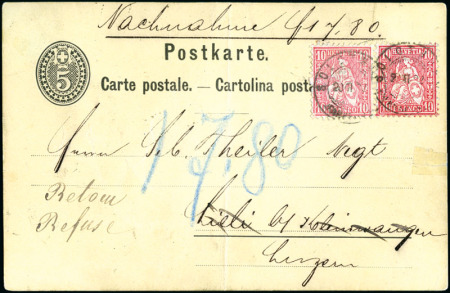 Nachnahme f 17.80.
Postkarte.
5
Carte postale. — Cartolina post
10 HELVETIA 10
10 HELVETIA 10
17.80
Herrn Seb. Theiler Negt
Retour
Refusé
Luzern